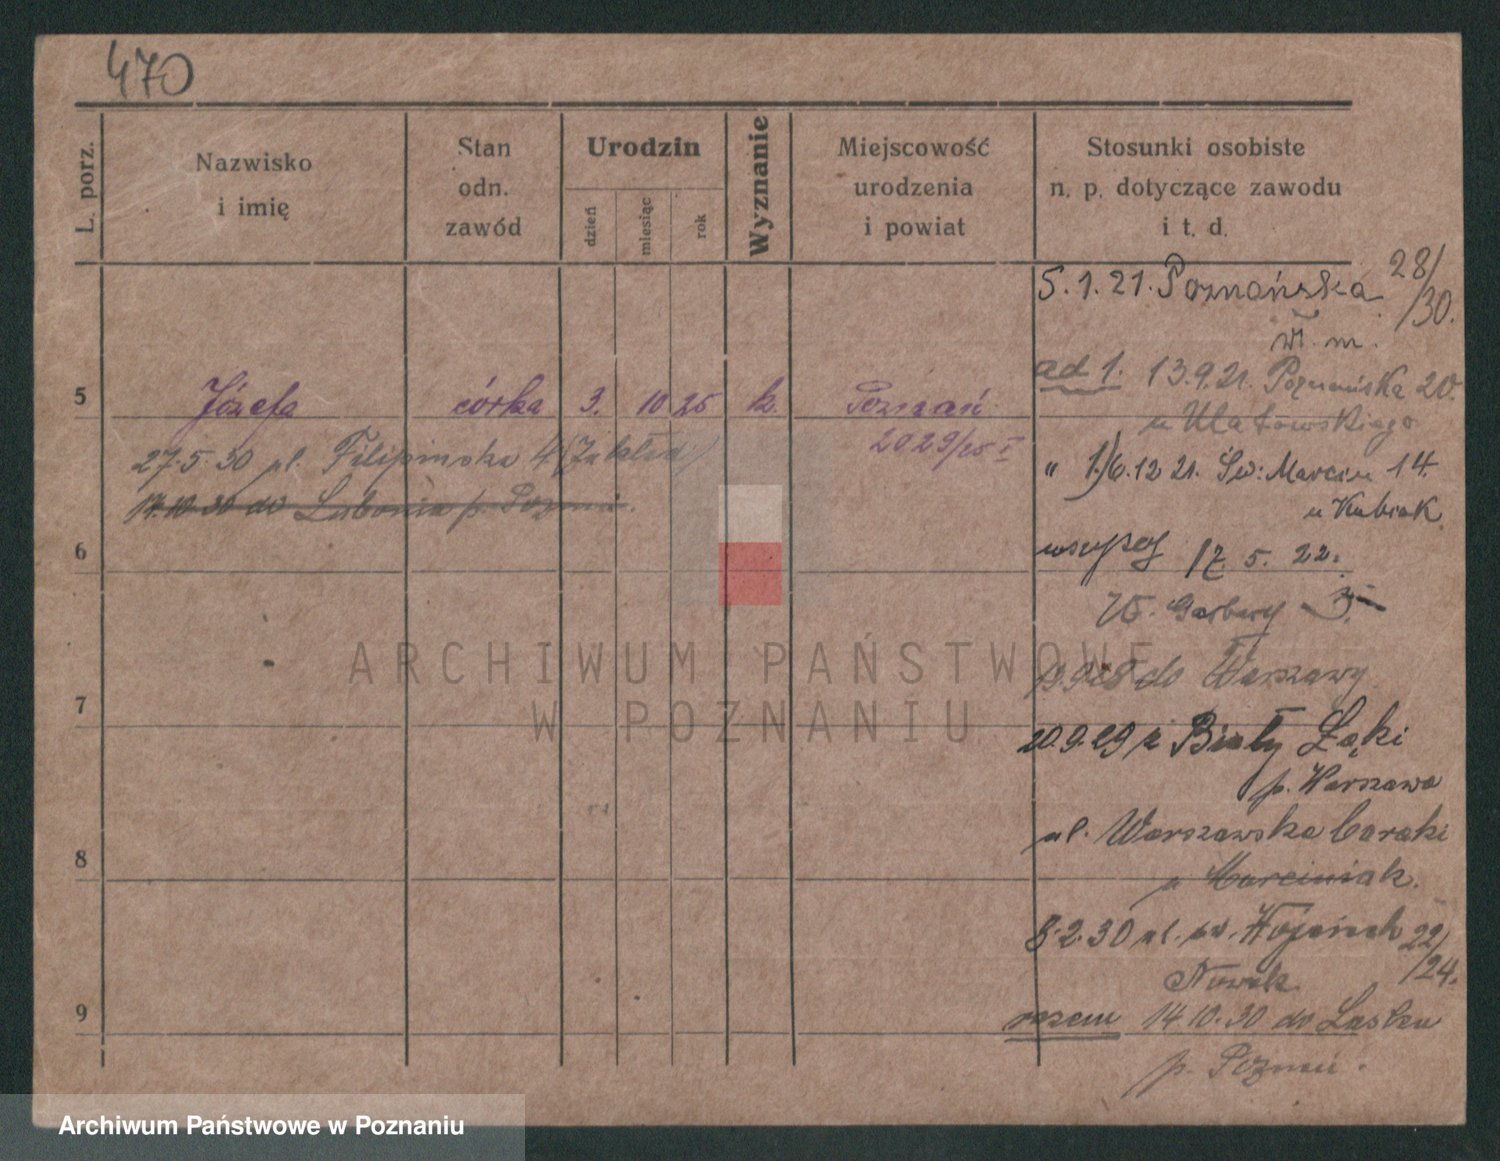 470
L. porz.
Nazwisko
i imię
Stan
odn.
zawód
Urodzin
dzień
miesiąc
rok
Wyznanie
Miejscowość
urodzenia
i powiat
Stosunki osobiste
n. p. dotyczące zawodu
i t. d.
5
Józefa
córka
3.
10
25
k.
Poznań
27.5.30 pl. Filipińska 4 (Zakład)
14.10.30 do Lubonia p. Pozna
6
7
8
9
5.1.21. Poznańska 28/
/30.
w. m.
ad 1. 13.9.21. Poznańska 20.
u Ulatowskiego
" 1.) 6.12 21. Św. Marcin 14.
u Kubiak
wszyscy 17. 5. 22.
W. Garbary 3.
19.9.28 do Warszawy
20.9.29 z Biały Łąki
p. Warszawa
ul. Warszawska baraki
u Marciniak.
8.2.30 ul. św. Wojciech 22/
/24.
Nowak
razem 14.10.30 do
p. Poznań.
ARCHIWUM PAŃSTWOWE
W POZNANIU
Archiwum Państwowe w Poznaniu